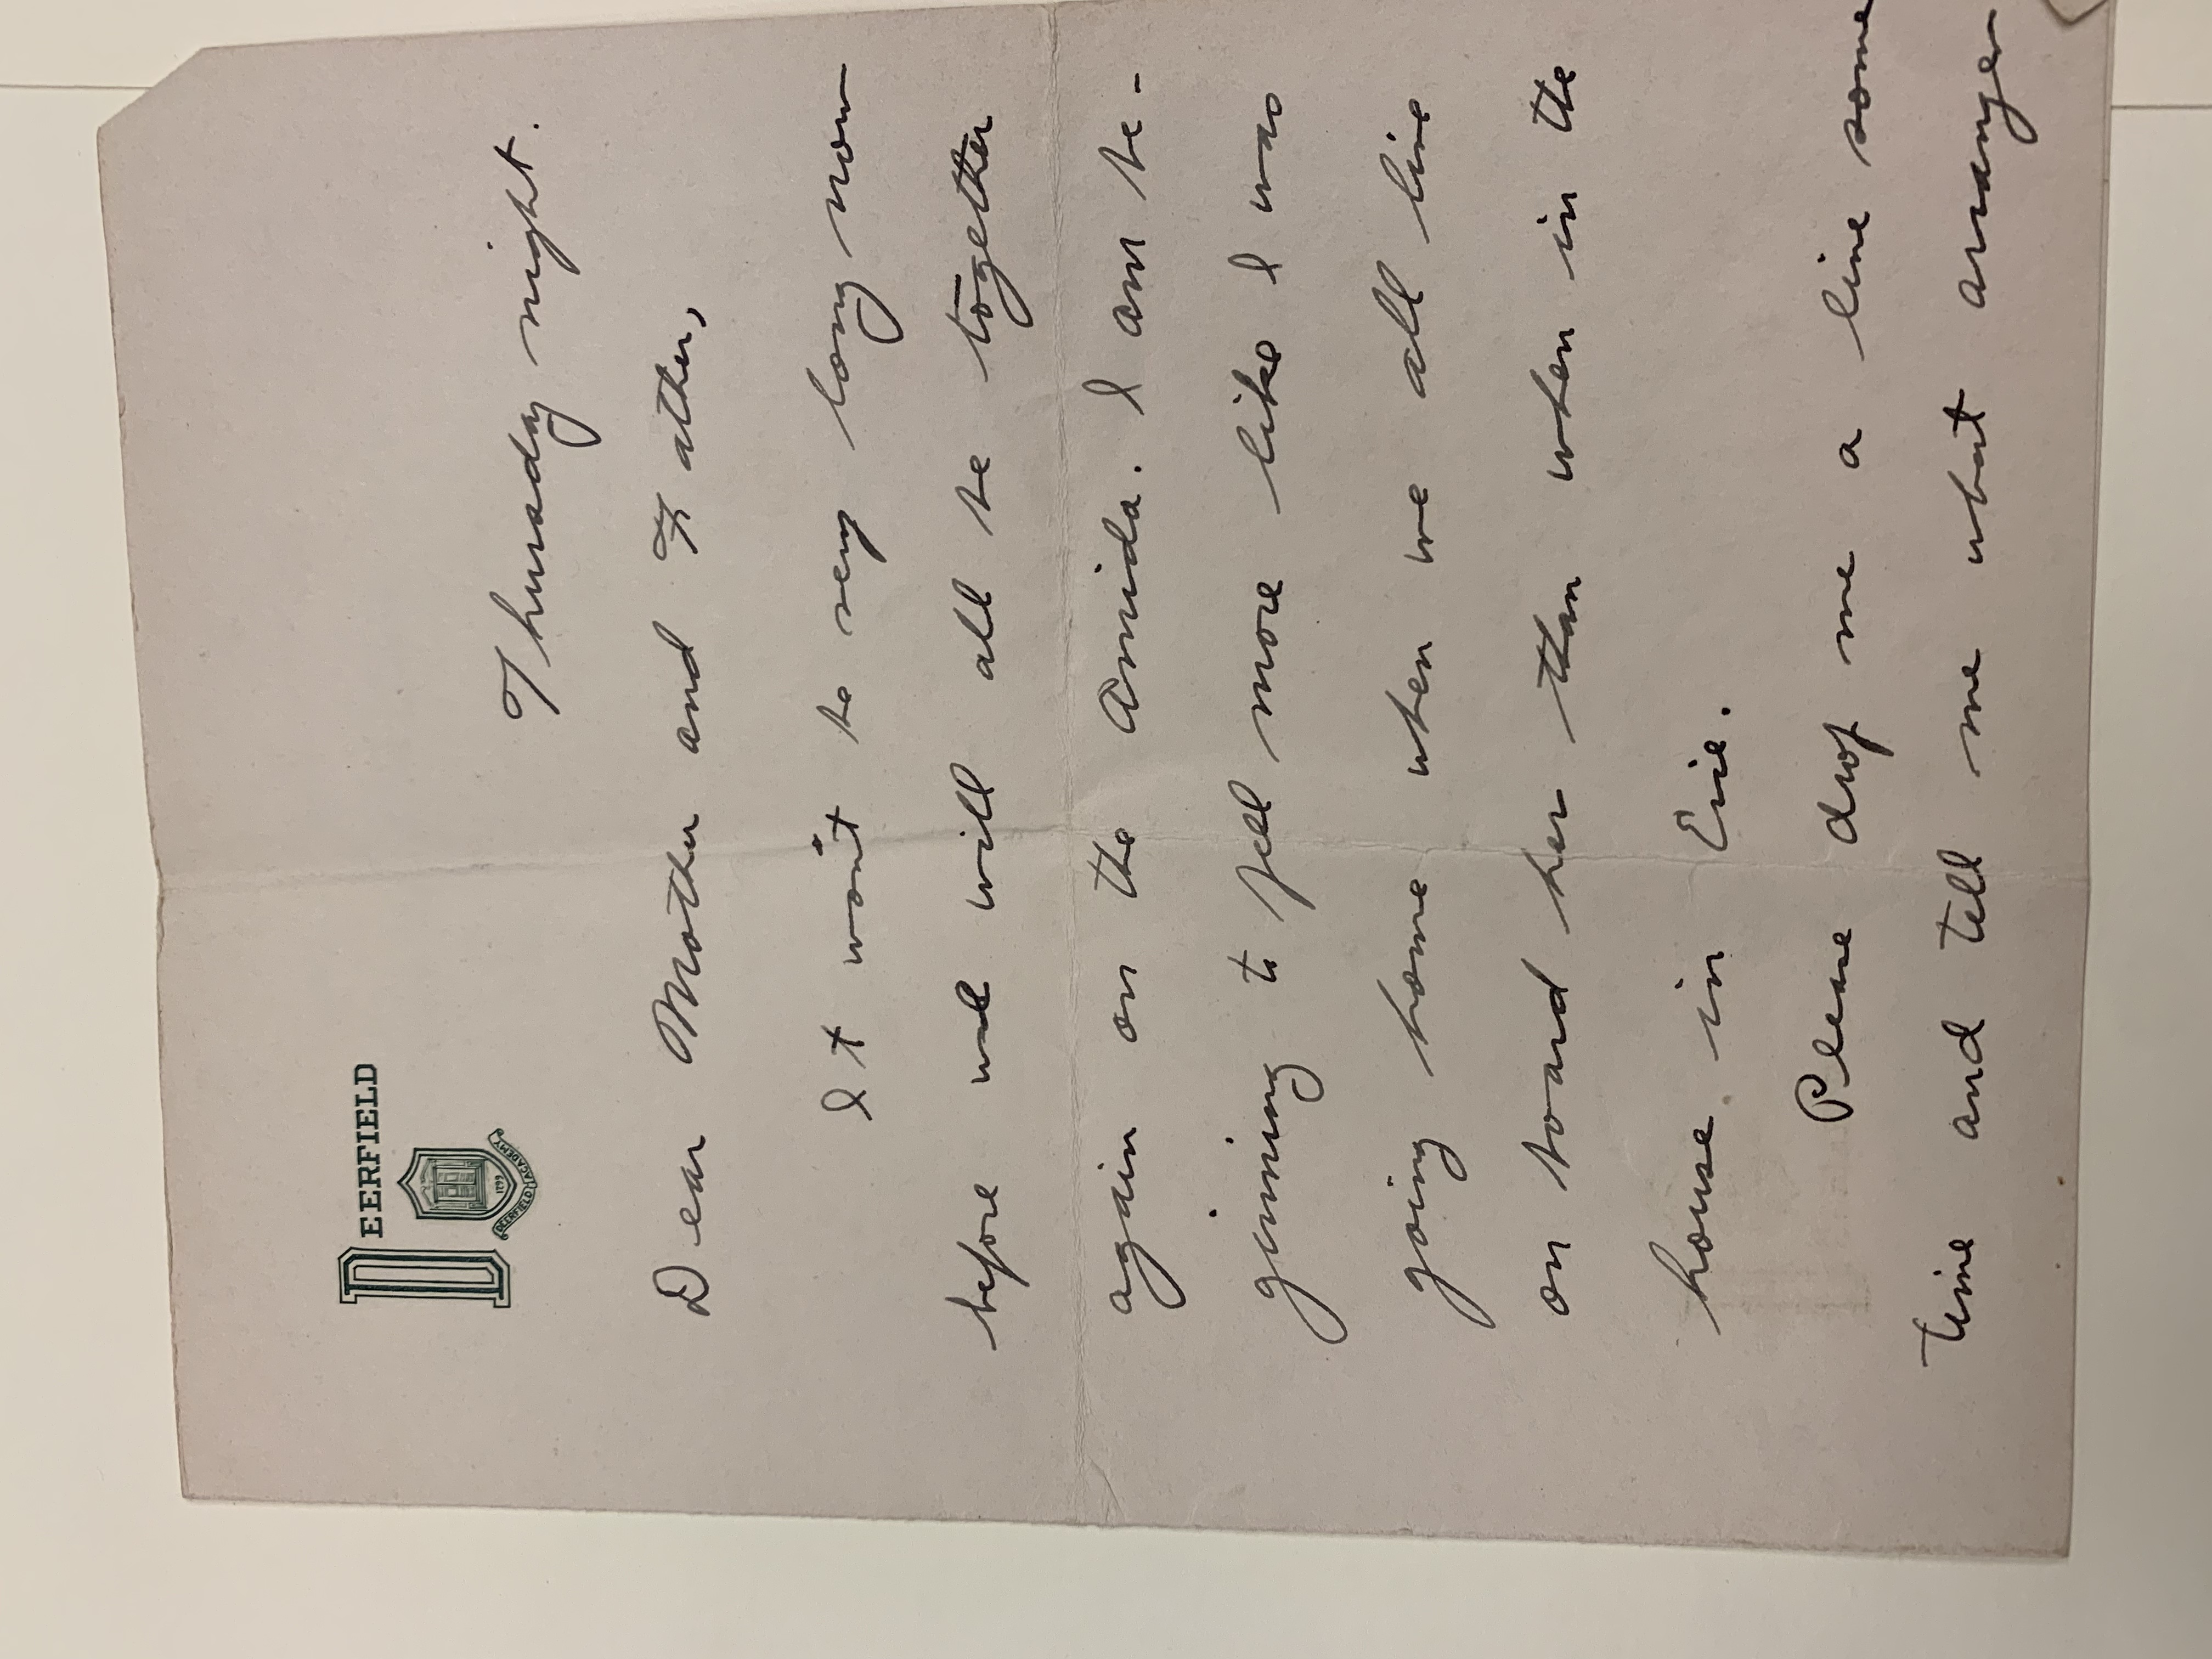 DEERFIELD
1799
DEERFIELD ACADEMY
Thursday night.
Dear Mother and Father,
It won't be very long now
before we will all be together
again on the Amida. I am be-
ginning to feel more like I was
going home when we all live
on board her than when in the
house in Erie.
Please drop me a line some
time and tell me what arrange